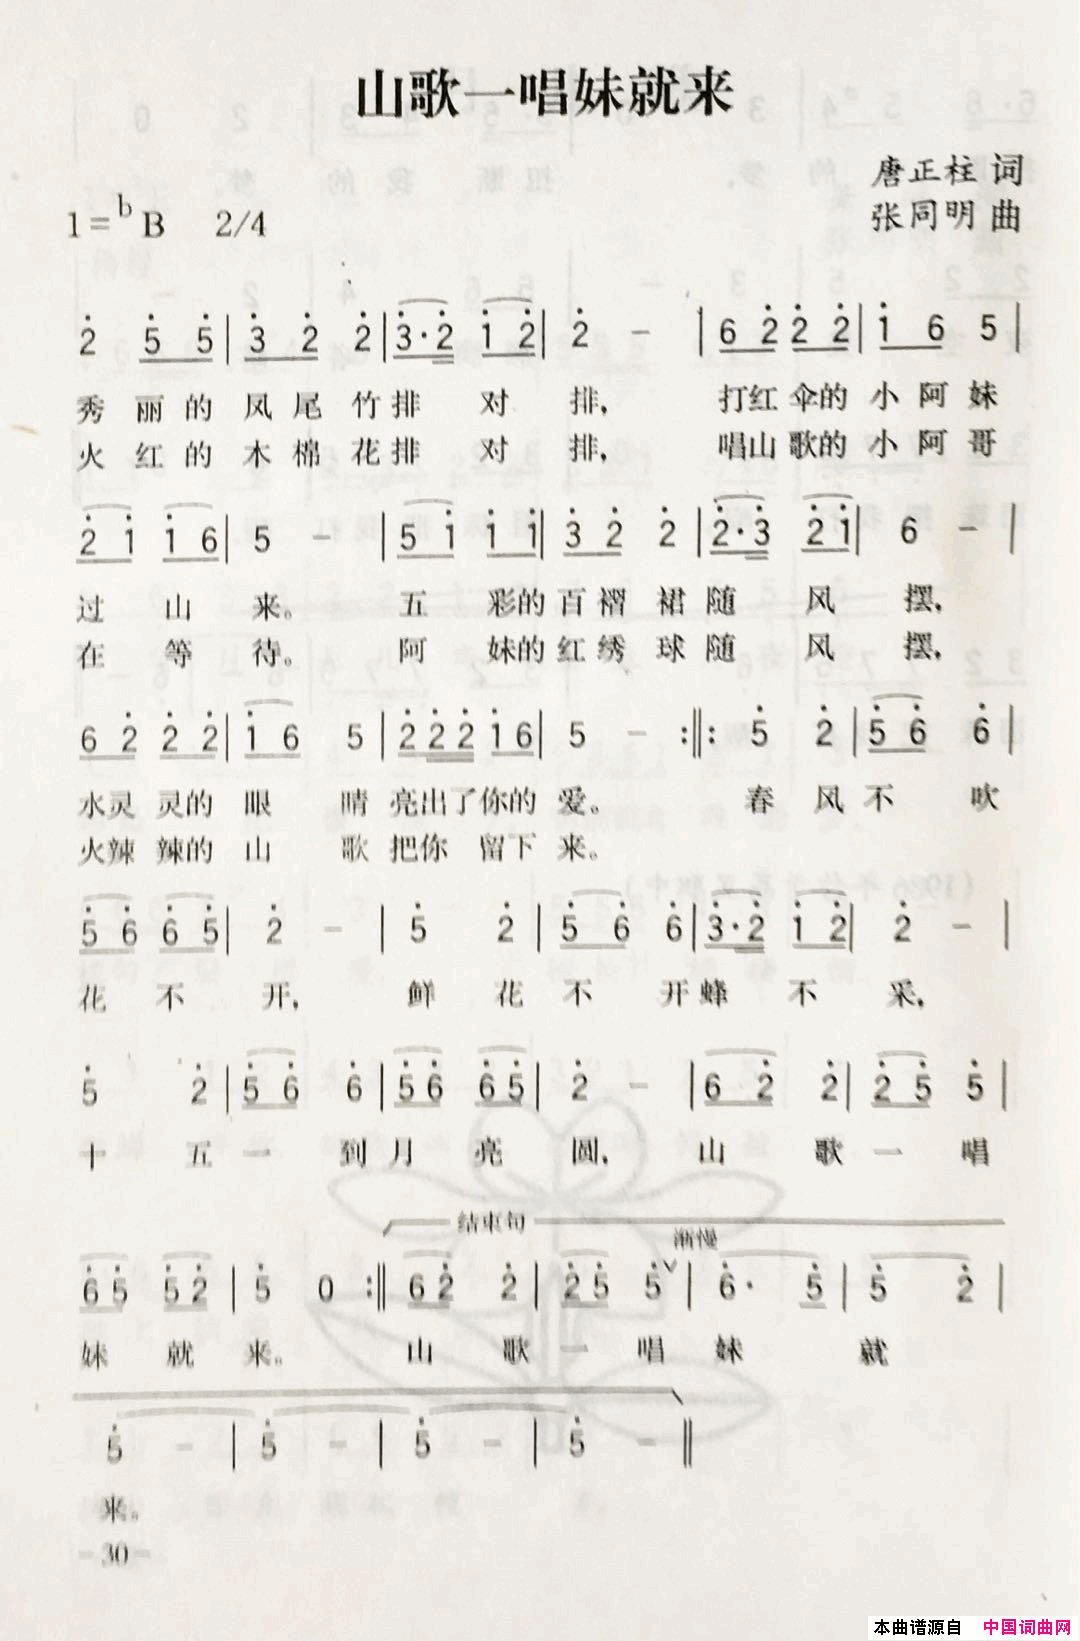 山歌一唱妹就来
唐正柱 词
1=bB 2/4 张同明 曲
2 5 5 | 3 2 2 | 3·2 1 2 | 2 － | 6 2 2 2 | 1 6 5 |
秀 丽 的 凤 尾 竹 排 对 排， 打红 伞的 小 阿 妹
火 红 的 木 棉 花 排 对 排， 唱山 歌的 小 阿 哥
2 1 1 6 | 5 － | 5 1 1 1 | 3 2 2 | 2·3 2 1 | 6 － |
过 山 来。 五 彩的 百 褶 裙 随 风 摆，
在 等 待。 阿 妹的 红 绣 球 随 风 摆，
6 2 2 2 | 1 6 5 | 2 2 2 1 6 | 5 － :‖: 5 2 | 5 6 6 |
水灵 灵的 眼 睛 亮出了你的 爱。 春 风 不 吹
火辣 辣的 山 歌 把你 留下 来。
5 6 6 5 | 2 － | 5 2 | 5 6 6 | 3·2 1 2 | 2 － |
花 不 开， 鲜 花 不 开 蜂 不 采，
5 2 | 5 6 6 | 5 6 6 5 | 2 － | 6 2 2 | 2 5 5 |
十 五 一 到 月 亮 圆， 山 歌 一 唱
结束句
渐慢
6 5 5 2 | 5 0 :‖ 6 2 2 | 2 5 5 ∨ | 6· 5 | 5 2 |
妹 就 来。 山 歌 一 唱 妹 就
5 － | 5 － | 5 － | 5 － ‖
来。
-30-
本曲谱源自 中国词曲网